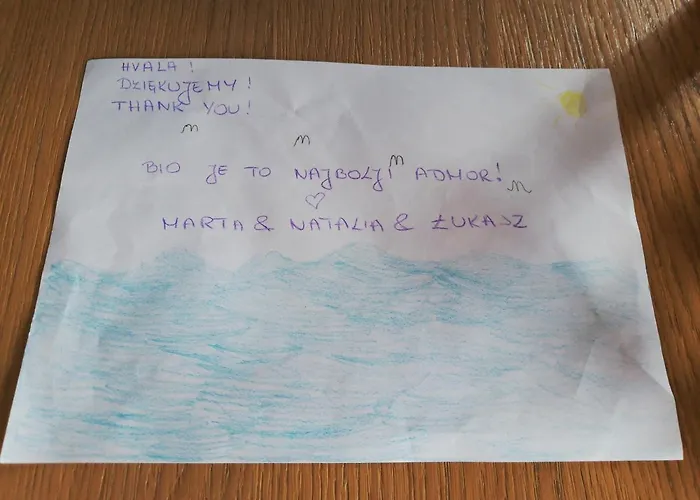 HVALA !
DZIĘKUJEMY !
THANK YOU !
BIO JE TO NAJBOLJI ADMOR!
MARTA & NATALIA & ŁUKASZ